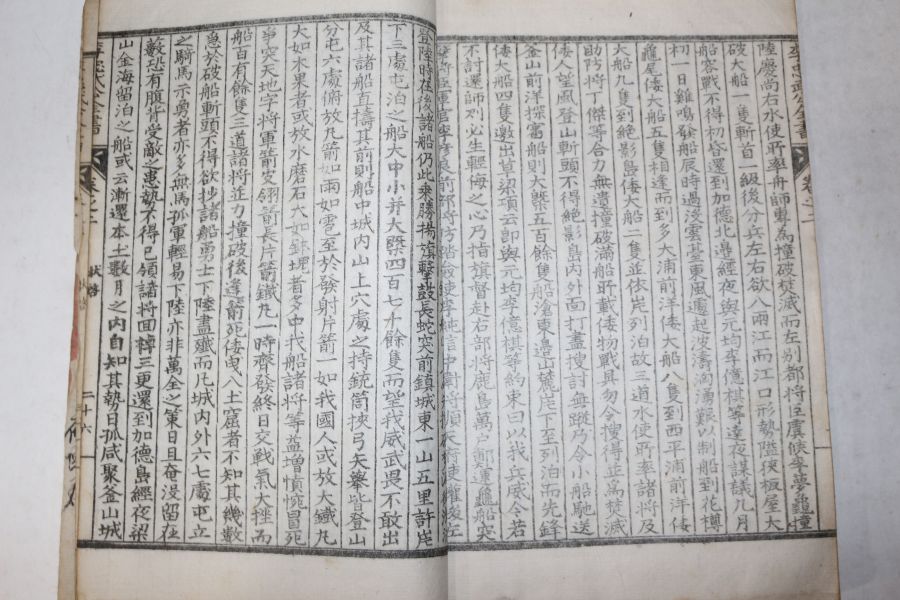 陸慶尙右水使所率舟師專爲撞破焚滅而左別都將臣虞候李夢龜撞
破大船一隻斬首一級後分兵左右欲入兩江而江口形勢隘狹板屋大
船容戰不得初昏還到加德北邊經夜與元均李億祺等達夜謀議九月
初一日雞鳴發船辰時過沒雲臺東風遽起波濤洶湧艱以制船到花樽
龜尾倭大船五隻相逢而到多大浦前洋倭大船八隻到西平浦前洋倭
大船九隻到絶影島倭大船二隻並依岸列泊故三道水使所率諸將及
助防將丁傑等合力無遺撞破滿船所載倭物戰具勿令搜得並爲焚滅
倭人望風登山斬頭不得絶影島內外面打畫搜討無蹤乃令小船馳送
釜山前洋探審船則大槩五百餘隻船滄東邊山麓岸下至列泊而先鋒
倭大船四隻邀出草梁項云卽與元均李億祺等約束曰以我兵威今若
不討還師則必生輕侮之心乃指旗督赴右部將鹿島萬戶鄭運龜船突
擊將臣軍官李彦良前部將防踏僉使李純信中衛將順天府使權俊左
登陸時在後諸船仍此乘勝揚旗擊鼓長蛇突前鎭城東一山五里許岸
下三處屯泊之船大中小幷大槩四百七十餘隻而望我威武畏不敢出
及其諸船直擣其前則船中城內山上穴處之持銃筒挾弓矢輩皆登山
分屯六處俯放丸箭如雨如雹至於發射片箭一如我國人或放大鐵丸
大如木果者或放水磨石大如鉢塊者多中我船諸將等益增憤惋冒死
爭突天地字將軍箭皮翎箭長片箭鐵丸一時齊發終日交戰氣大挫而
船百有餘隻三道諸將並力撞破後逢箭死倭曳入土窟者不知其幾數
急於破船斬頭不得欲抄諸船勇士下陸盡殲而凡城內外六七處屯立
之騎馬示勇者亦多無馬孤軍輕易下陸亦非萬全之策日且奄沒留在
藪恐有腹背受敵之患勢不得已領諸將回棹三更還到加德島經夜梁
山金海留泊之船或云漸還本土數月之內自知其勢日孤咸聚釜山城
李忠武公全書
卷之二
狀啓
二十六